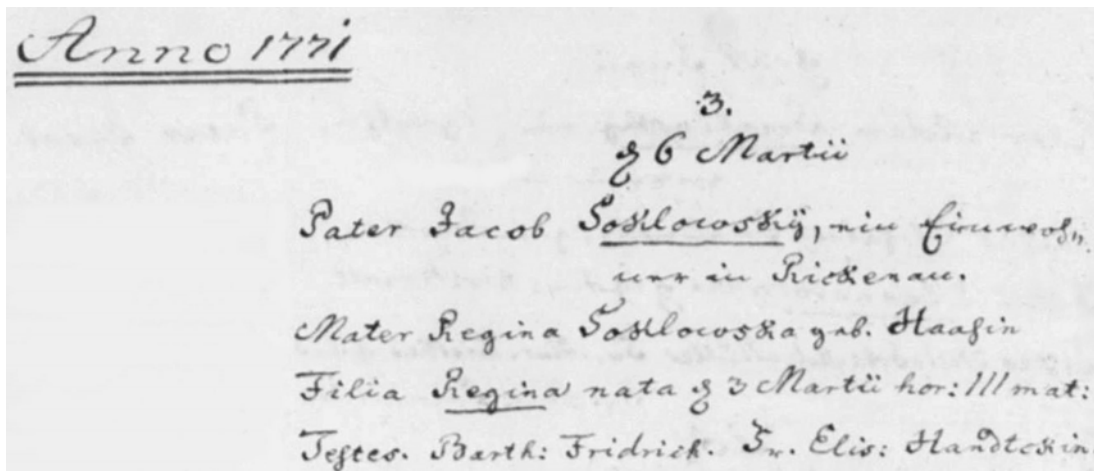 Anno 1771
3.
d 6 Martii
Pater Jacob Soklowsky, ein Einwoh-
ner in Rickenau.
Mater Regina Soklowska geb. Haasin
Filia Regina nata d 3 Martii hor: III mat:
Testes. Barth: Fridrich. Fr. Elis: Handtckin